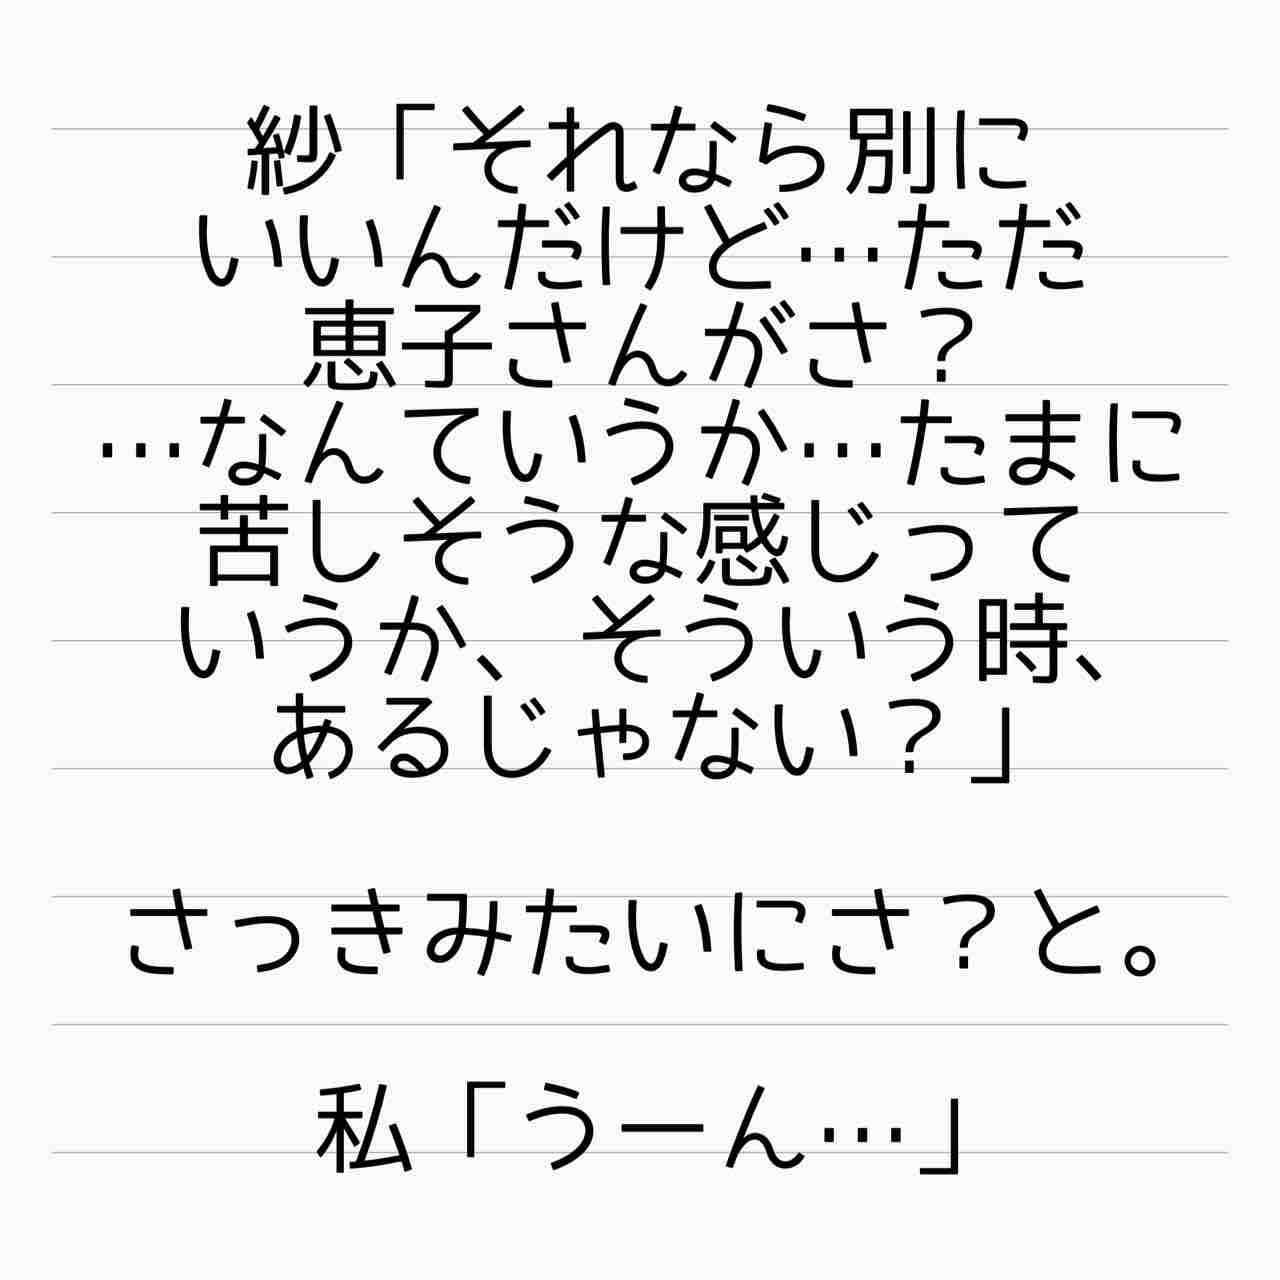 紗「それなら別に
いいんだけど…ただ
恵子さんがさ？
…なんていうか…たまに
苦しそうな感じって
いうか、そういう時、
あるじゃない？」
さっきみたいにさ？と。
私「うーん…」